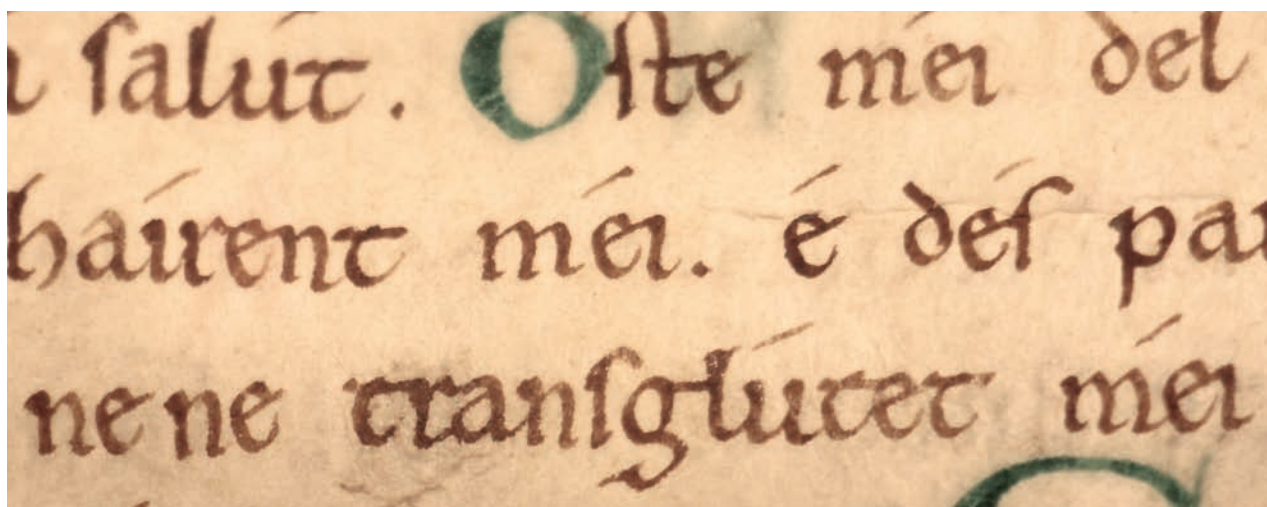 salut. Oste mei del
hairent mei. é des
ne ne transglutet mei